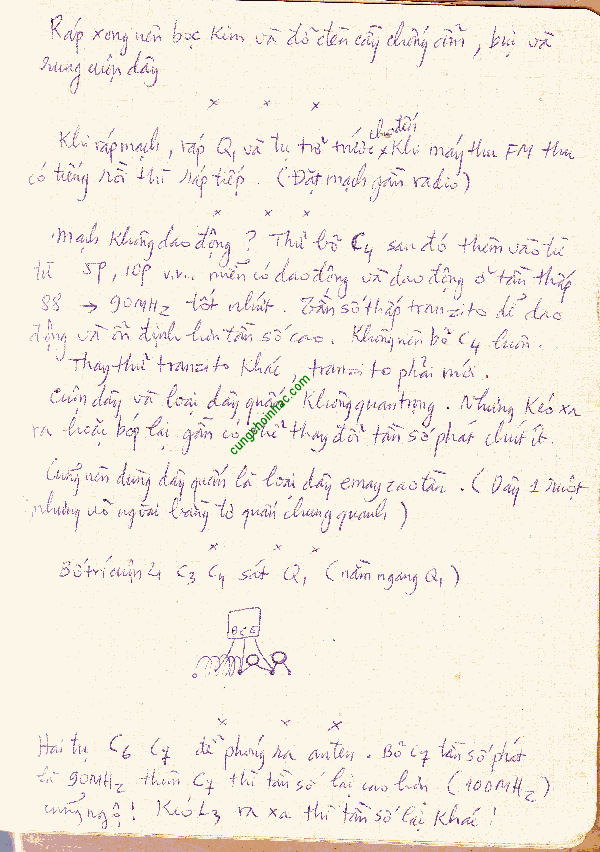 Ráp xong nên bọc Kim và đổ đèn cầy chống ẩm, bụi và
rung cuộn dây
x x x
chođến
Khi ráp mạch, ráp Q1 và tụ trở trước x Khi máy thu FM thu
có tiếng rồi thì ráp tiếp. (Đặt mạch gần radio)
x x x
Mạch Không dao động? Thử bỏ C4 sau đó thêm vào từ
từ 5p, 10p v.v... miễn có dao động và dao động ở tần thấp
88 → 90MHz tốt nhứt. Tần số thấp tranzito dể dao
động và ổn định hơn tần số cao. Không nên bỏ C4 luôn.
Thay thử tranzito Khác, tranzito phải mới.
cungchoinhac.com
Cuộn dây và loại dây quấn Không quan trọng. Nhưng Kéo xa
ra hoặc bóp lại gần có thể thay đổi tần số phát chút ít.
Cũng nên dùng dây quấn là loại dây emay cao tần. (Dây 1 ruột
nhưng vỏ ngoài bằng tơ quấn chung quanh)
x x x
Bố trí cuộn L1 C3 C4 sát Q1 (nằm ngang Q1)
B C E
x x x
Hai tụ C6 C7 để phóng ra anten. Bỏ C7 tần số phát
là 90MHz thêm C7 thì tần số lại cao hơn (100MHz)
cũng ngộ! Kéo L3 ra xa thì tần số lại Khác!